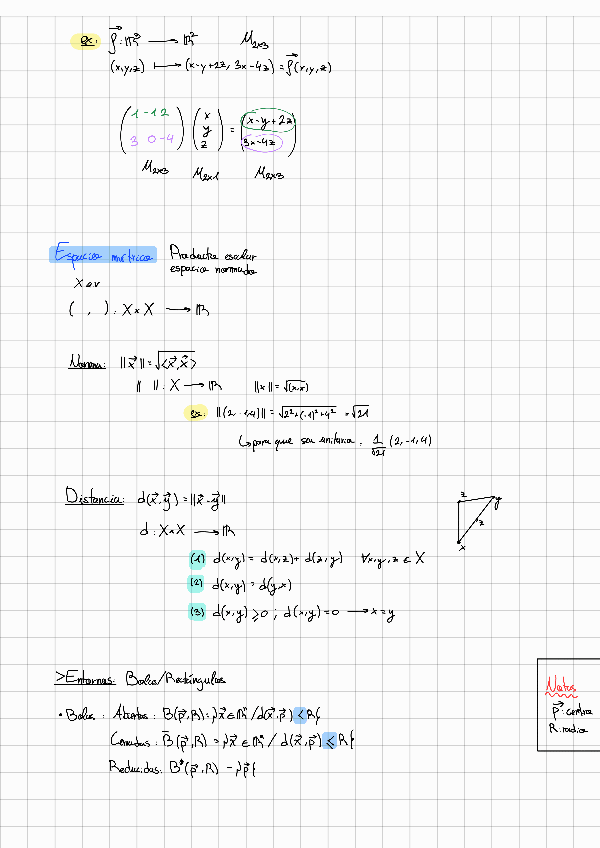 ex: f⃗: ℝ³ ⟶ ℝ² M₂ₓ₃
(x,y,z) ⟼ (x-y+2z, 3x-4z) = f⃗(x,y,z)
(1 -1 2) (x) (x-y+2z)
(3 0 -4) (y) = (3x-4z)
(z)
M₂ₓ₃ M₂ₓ₁ M₂ₓ₃
Espacios métricos Producto escalar
espacio normado
X ev
( , ) : X × X ⟶ ℝ
Norma: ||x⃗|| = √⟨x⃗,x⃗⟩
|| || : X ⟶ ℝ ||x|| = √(x,x)
ex: ||(2 -1,4)|| = √2²+(-1)²+4² = √21
↳ para que sea unitario: 1/√21 (2,-1,4)
Distancia: d(x⃗,y⃗) = ||x⃗-y⃗||
d : X×X ⟶ ℝ
z y
z
x
(1) d(x,y) = d(x,z) + d(z,y) ∀x,y,z ∈ X
(2) d(x,y) = d(y,x)
(3) d(x,y) ⩾ 0 ; d(x,y) = 0 ⟶ x=y
>Entornos: Bolas/Rectángulos
Notas
p⃗: centro
R: radio
• Bolas: Abiertas: B(p⃗,R) = {x⃗ ∈ ℝⁿ / d(x⃗,p⃗) < R}
Cerradas: B̄(p⃗,R) = {x⃗ ∈ ℝⁿ / d(x⃗,p⃗) ⩽ R}
Reducidas: B*(p⃗,R) - {p⃗}